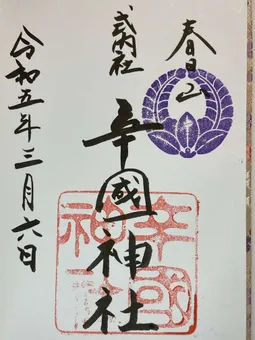 春日山
式内社
辛國神社
令和五年三月六日
辛國神社